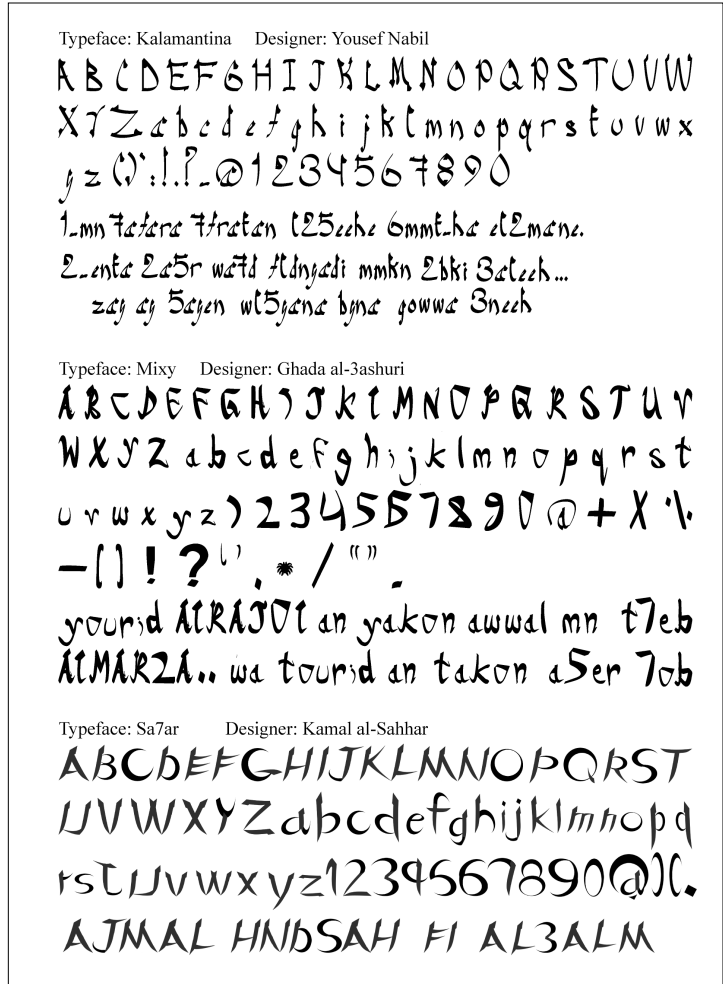 Typeface: Kalamantina Designer: Yousef Nabil
A B C D E F G H I J K L M N O P Q R S T U V W
X Y Z a b c d e f g h i j k l m n o p q r s t u v w x
y z ( ) ' : ! . ? - @ 1 2 3 4 5 6 7 8 9 0
1-mn 7afara 7fratan l25eehe 6mmt-ha el2mane.
2-enta 2a5r wa7d fldnyadi mmkn 2bki 3aleeh...
zay ay 5ayen wl5yana byna gowwa 3neeh
Typeface: Mixy Designer: Ghada al-3ashuri
A B C D E F G H I J K L M N O P Q R S T U V
W X Y Z a b c d e f g h i j k l m n o p q r s t
u v w x y z 1 2 3 4 5 6 7 8 9 0 @ + X %
- ( ) ! ? ' ' . * / " " .
yourid AlRAJOl an yakon awwal mn t7eb
AlMAR2A.. wa tourid an takon a5er 7ob
Typeface: Sa7ar Designer: Kamal al-Sahhar
A B C D E F G H I J K L M N O P Q R S T
U V W X Y Z a b c d e f g h i j k l m n o p q
r s t u v w x y z 1 2 3 4 5 6 7 8 9 0 @ ) ( .
AJMAL HNDSAH FI AL3ALM